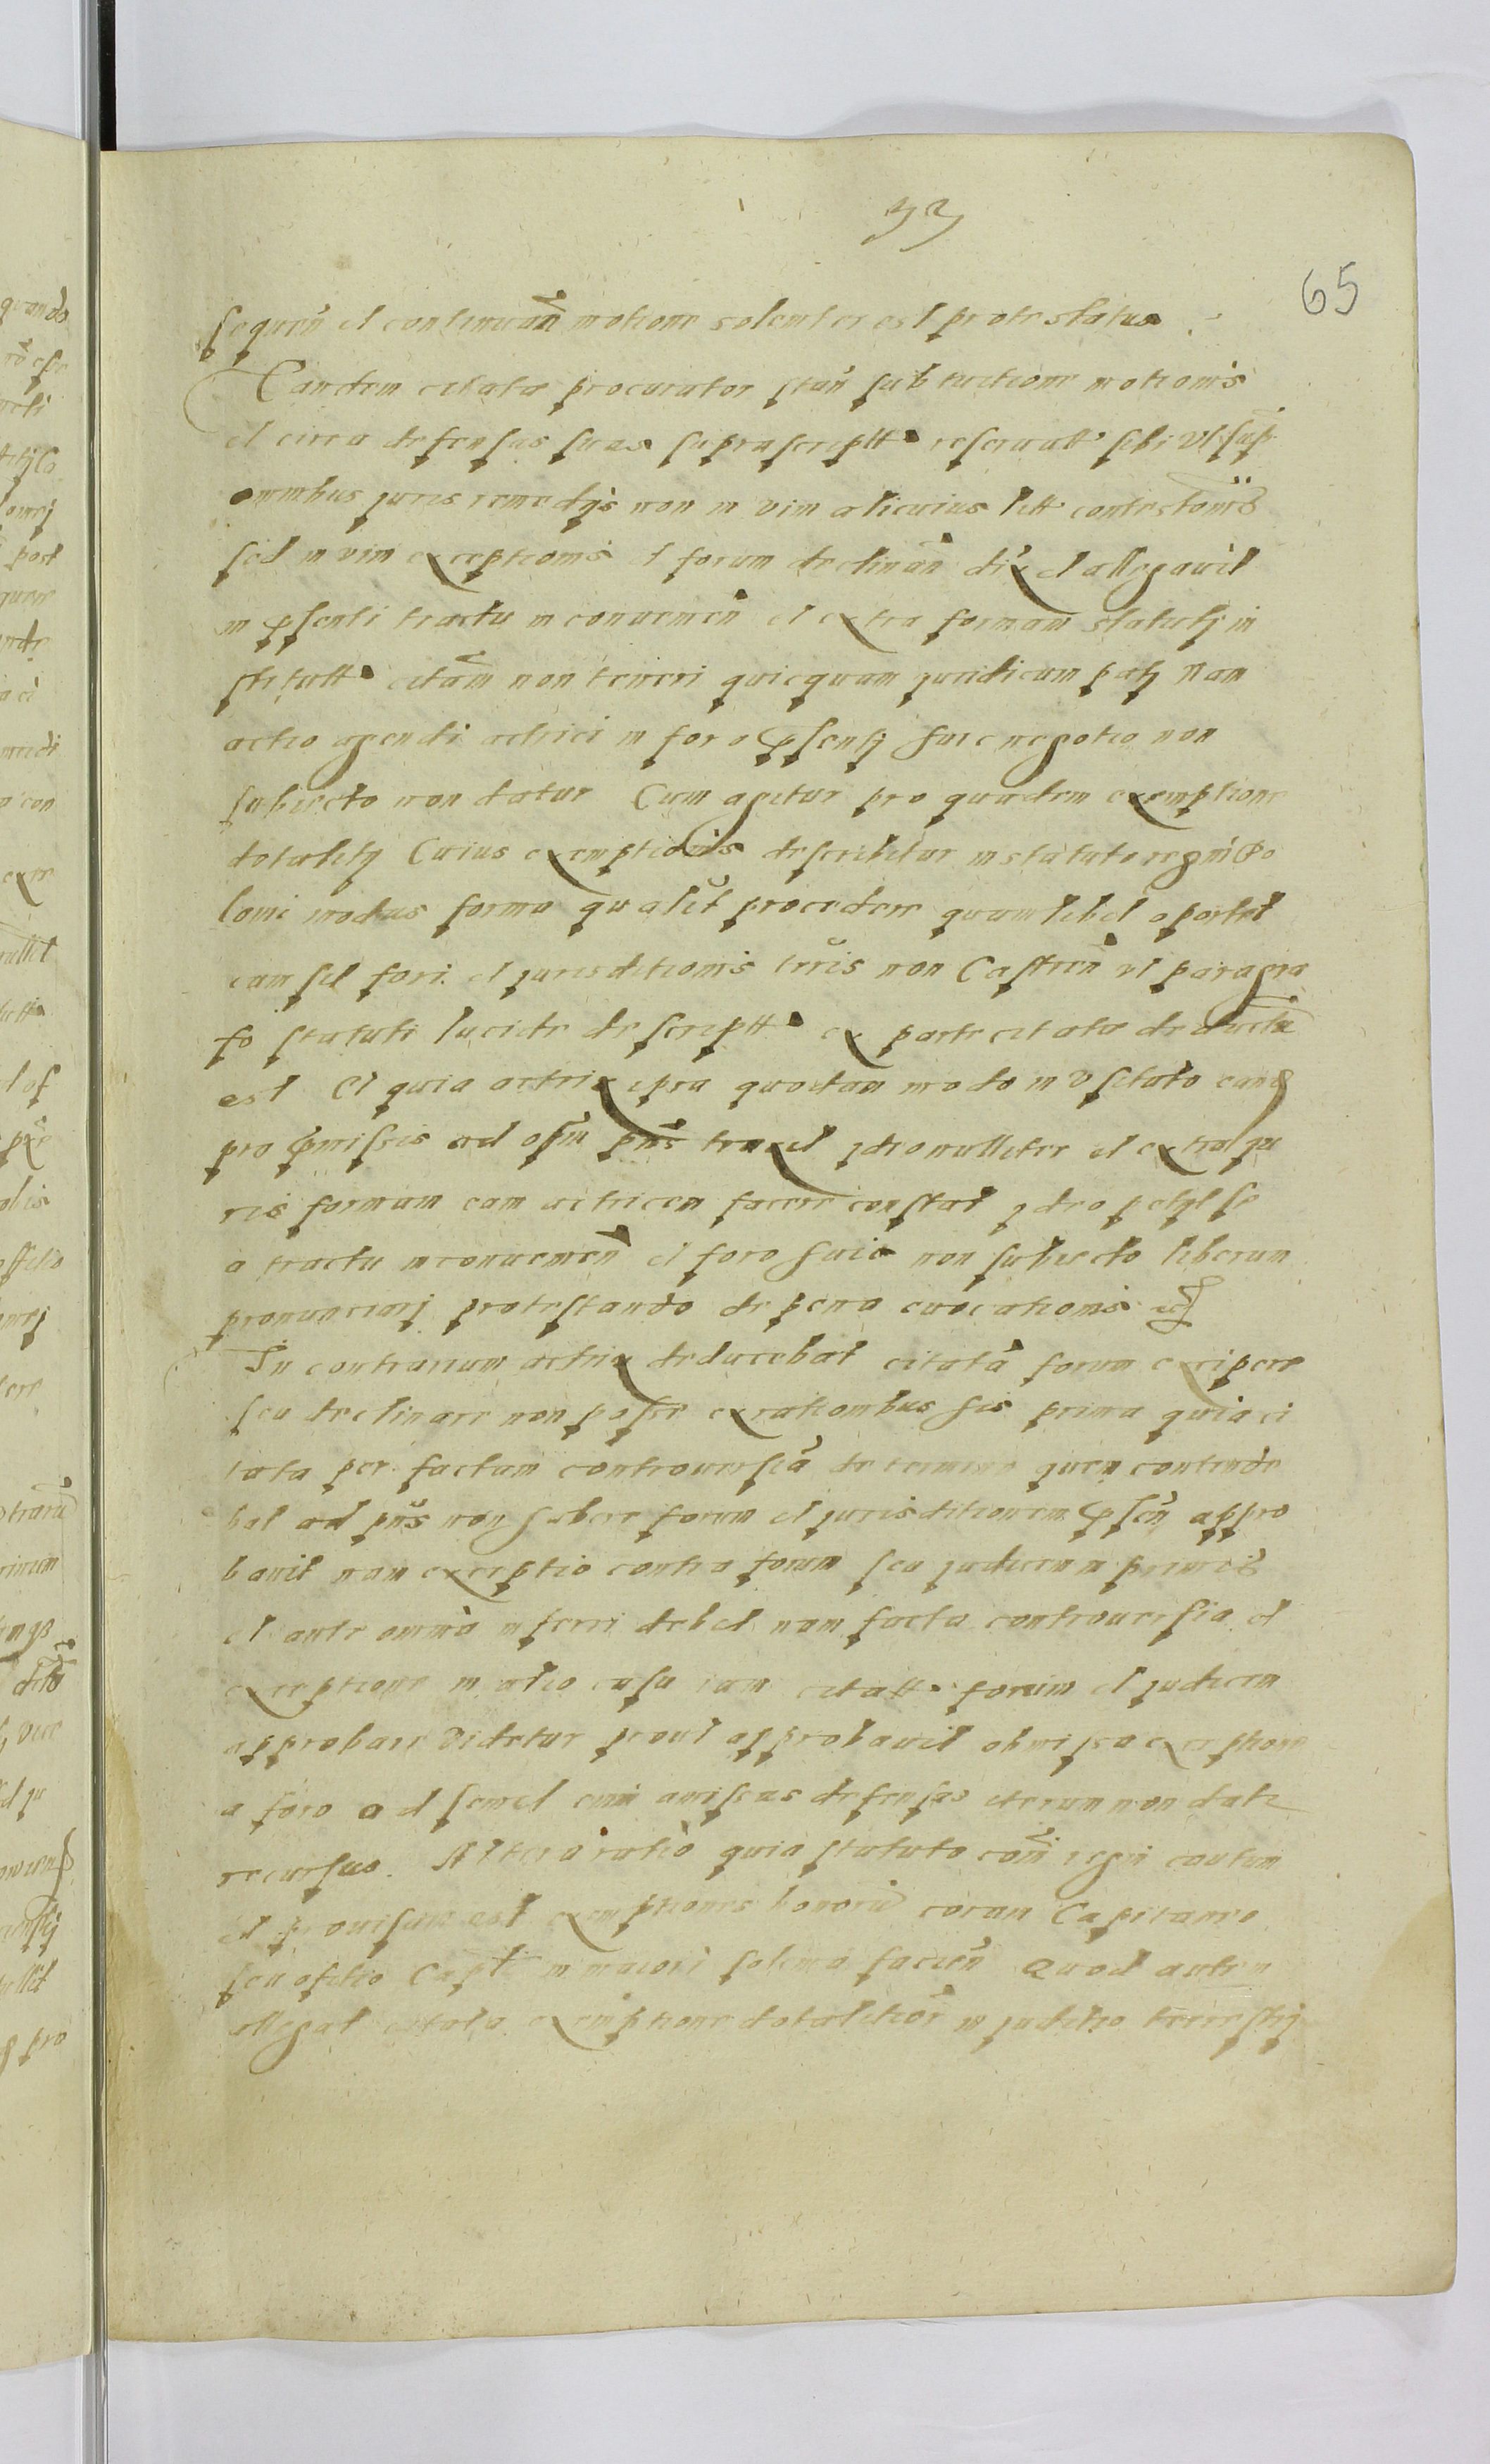 65
sequen et continuan motione solenter est protestatus
Tandem citatae procurator stan sub tuitione motionis
et circa defensas suas suprascriptt reseruatt sibi vt supr
omnibus juris remedijs non in vim alicuius litt contestonis
sed in vim exceptionis et forum declinan dix et allegauit
in psenti tractu inconuenien et extra formam statutj in
stitutt citam non teneri quicquam juridicum patj Nam
actio agendi actrici in foro psentj huic negotio non
subiecto non datur Cum agitur pro quadem exemptione
dotalitij Cuius exemptionis describitur in statuto regni Po
loni modus forma qualit procedere quamlibet oportet
cum sit fori et jurisditionis trris non Castren vt paragra
fo statuti lucide descriptt ex parte citatae deducta
est Et quia actrix ipsa quodam modo inusitato eand
pro pmissis ad ofm pns traxit jdeo nulliter et extra ju
ris formam eam actricem facere constat jdeo petijt se
a tractu inconuenien et foro huic non subiecto liberum
pronunciarj protestando de pena euocationis
In contrarium actrix deducebat citata forum excipere
seu declinare non posse ex rationibus his prima quia ci
tata per factam controuersia de termino quem contende
bat ad pns non habere forum et jurisditionem psen appro
bauit nam exceptio contra forum seu judicem in primis
et ante omnia inferri debet nam facta controuersia et
exceptione in alio casu iam citatt forum et judicem
approbare videtur prout approbauit obmissa exceptione
a foro ad semel enim amissas defensas iterum non datr
recursus. Altera ratio quia statuto coni regni cautum
et prouisum est exemptiones bonoru coram Capitaneo
seu ofitio Capt in maiori solima facien Quod autem
allegat citata exemptione dotalitior in juditio terrestrj